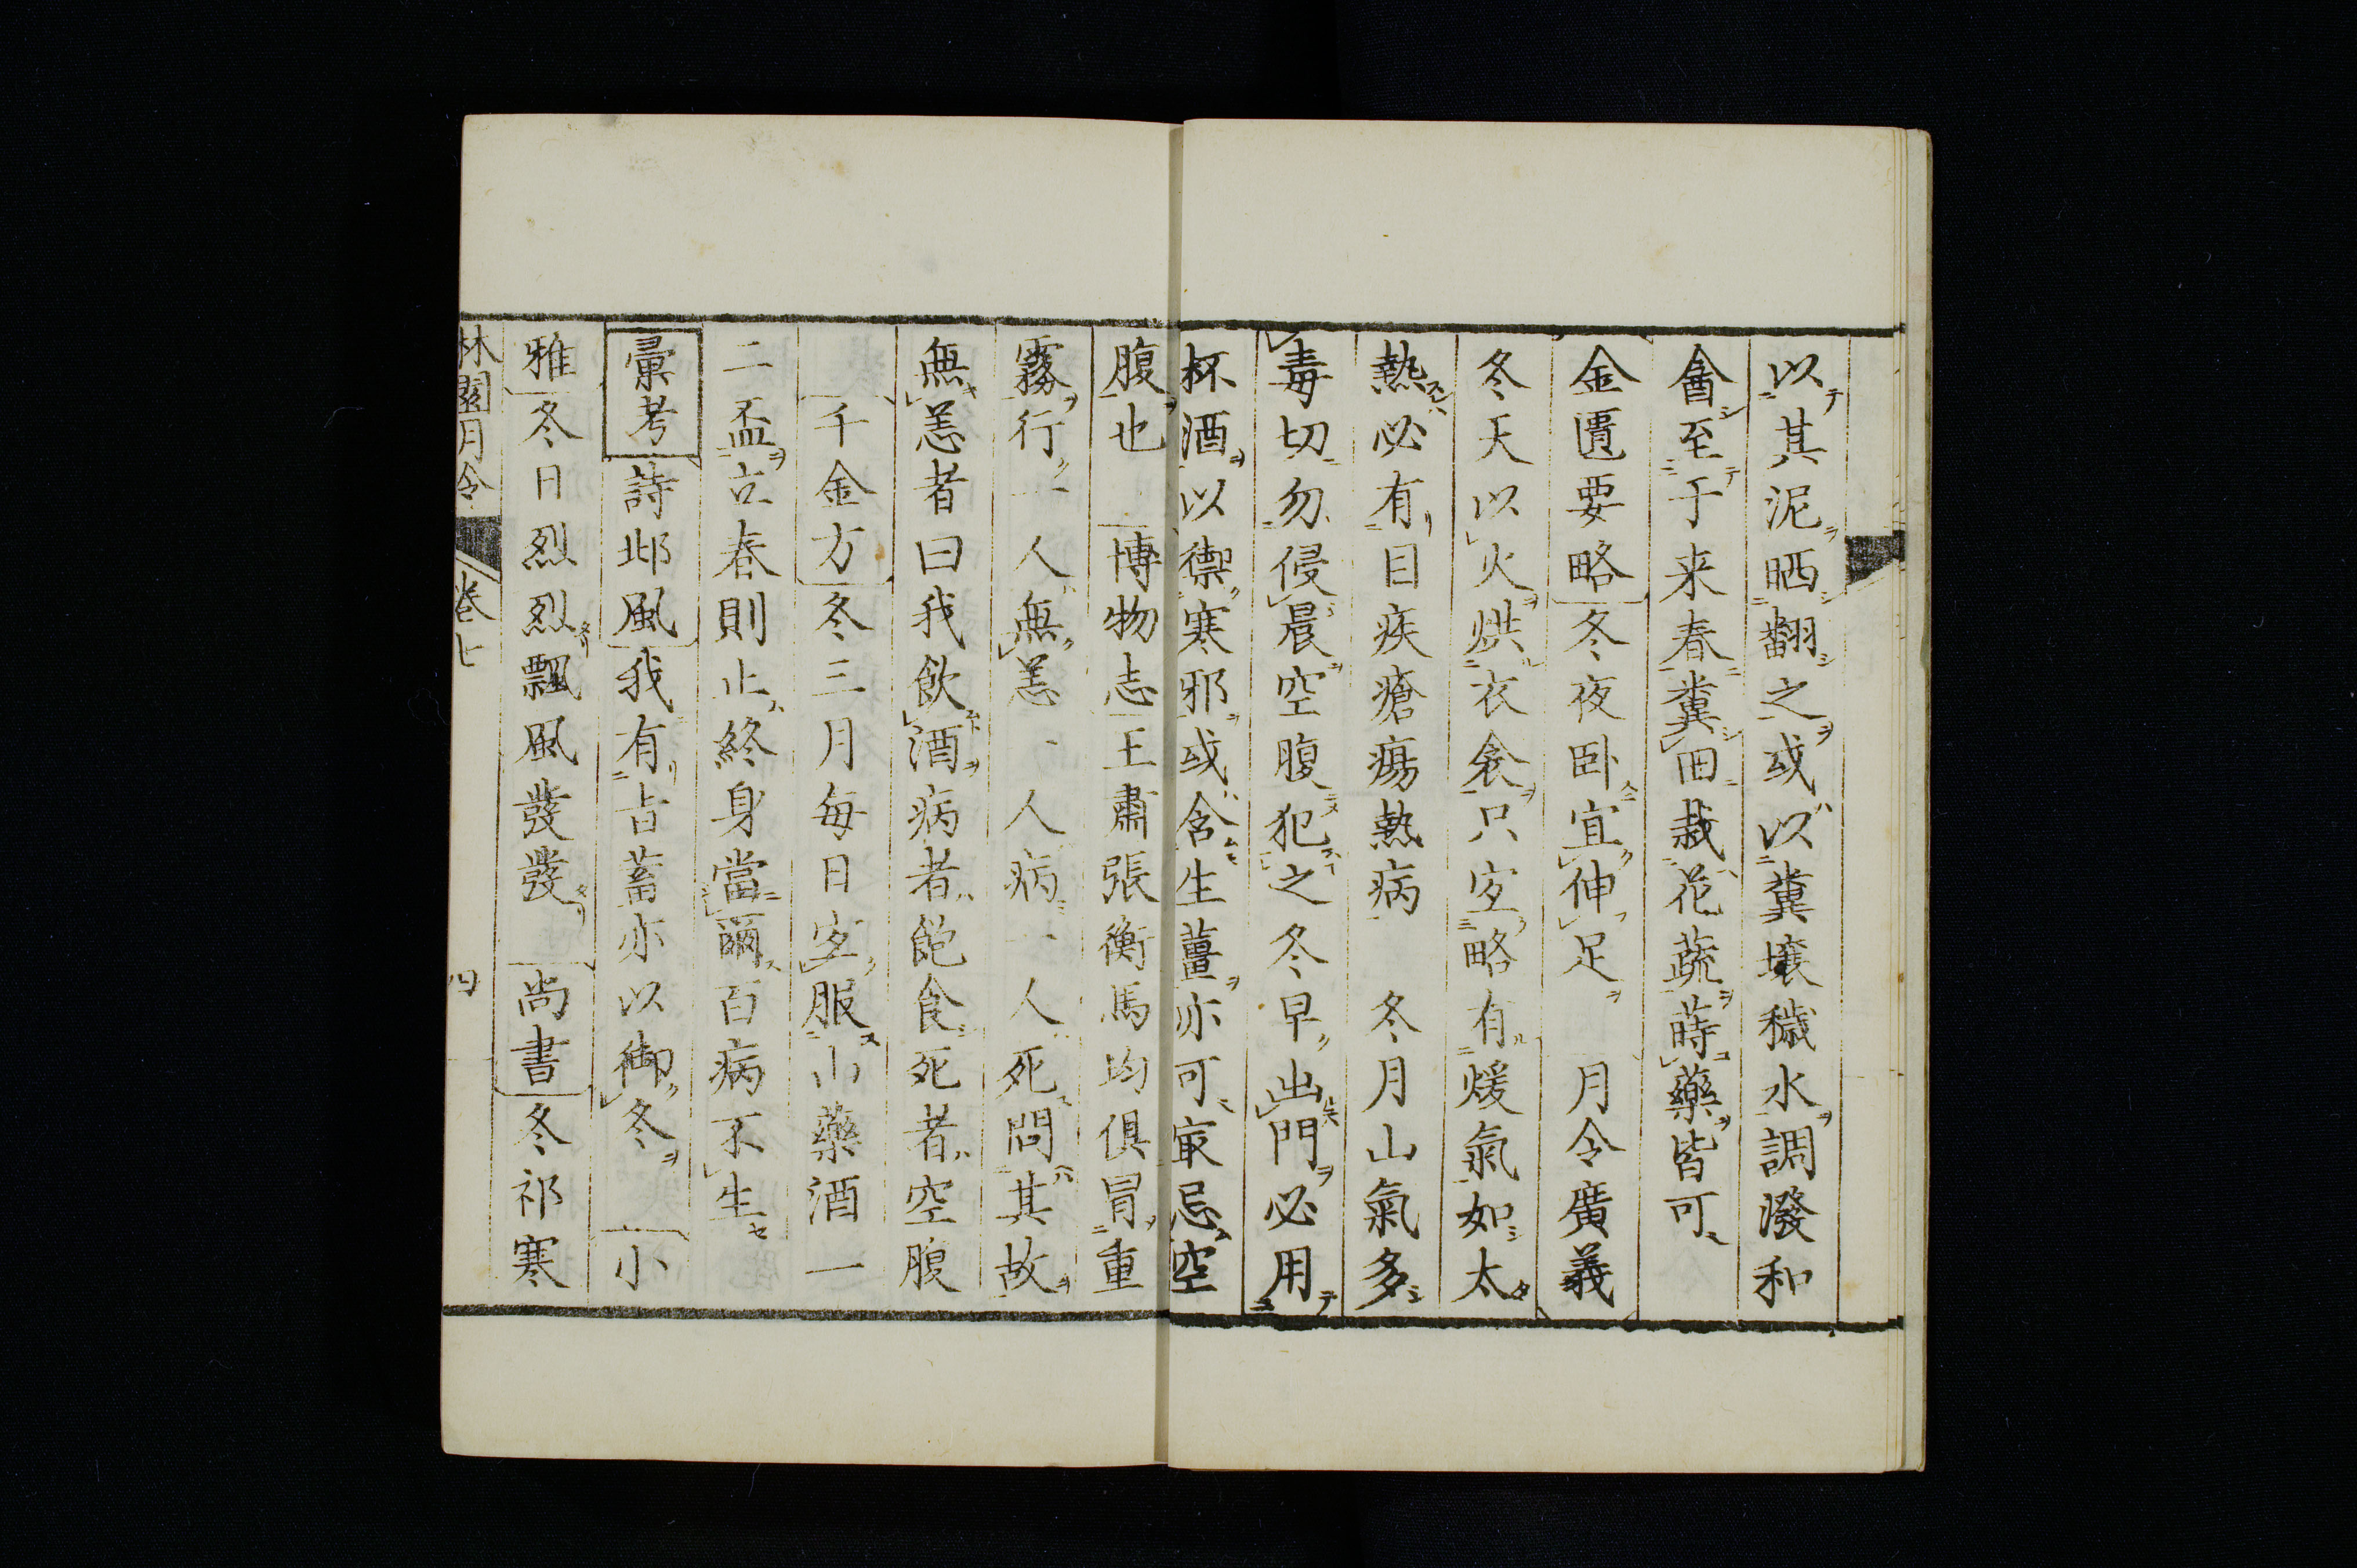 以其泥晒翻之或以糞壤穢水調潑和
會至于来春糞田栽花蔬蒔藥皆可
金匱要略冬夜卧宜伸足　月令廣義
冬天以火烘衣衾只宜略有煖氣如太
熱必有目疾瘡瘍熱病　冬月山氣多
毒切勿侵晨空腹犯之冬早出門必用
杯酒以禦寒邪或含生薑亦可㝡忌空
腹也　博物志王肅張衡馬均俱冒重
霧行一人無恙一人病一人死問其故
無恙者曰我飲酒病者飽食死者空腹
千金方冬三月每日宜服山藥酒一
二盃立春則止終身當爾百病不生
彙考詩邶風我有旨蓄亦以御冬　小
雅冬日烈烈飄風發發　尚書冬祁寒
林閭月令　卷七　四